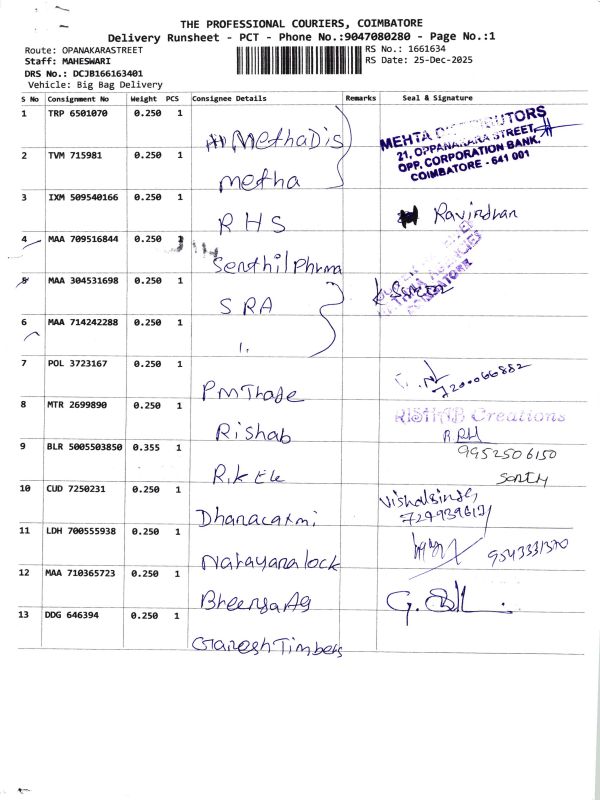 THE PROFESSIONAL COURIERS, COIMBATORE
Delivery Runsheet - PCT - Phone No.:9047080280 - Page No.:1
Route: OPANAKARASTREET
RS No.: 1661634
Staff: MAHESWARI
RS Date: 25-Dec-2025
DRS No.: DCJB166163401
Vehicle: Big Bag Delivery
S No Consignment No Weight PCS Consignee Details Remarks Seal & Signature
1 TRP 6501070 0.250 1 MethaDis
MEHTA DISTRIBUTORS
21, OPPANAKARA STREET,
OPP. CORPORATION BANK,
COIMBATORE - 641 001
2 TVM 715981 0.250 1 metha
3 IXM 509540166 0.250 1 RHS Ravindhan
4 MAA 709516844 0.250 Senthil Phrma
5 MAA 304531698 0.250 1 SRA
6 MAA 714242288 0.250 1
7 POL 3723167 0.250 1 PmThade 7200066882
8 MTR 2699890 0.250 1 Rishab RISHAB Creations
9 BLR 5005503850 0.355 1 R.k Ele 9952506150
10 CUD 7250231 0.250 1 Dhanacaxmi
11 LDH 700555938 0.250 1 Narayanalock
12 MAA 710365723 0.250 1
13 DDG 646394 0.250 1 GaneshTimbers